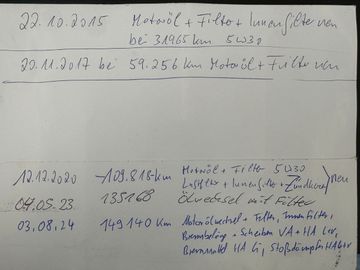 22.10.2015 Motoröl + Filter + Innenfilter neu
bei 31965 km 5W30
20.11.2017 bei 59.256 km Motoröl + Filter neu
12.12.2020 -109.815 km Motoröl + Filter 5W30
Luftfilter + Innenfilter + Zündkerzen neu
04.05.23 135168 Ölwechsel mit Filter
03.08.24 149140 km Motorölwechsel + Filter, Innenfilter,
Bremsbeläge + Scheiben VA + HA
HA Li, Stoßdämpfer HA